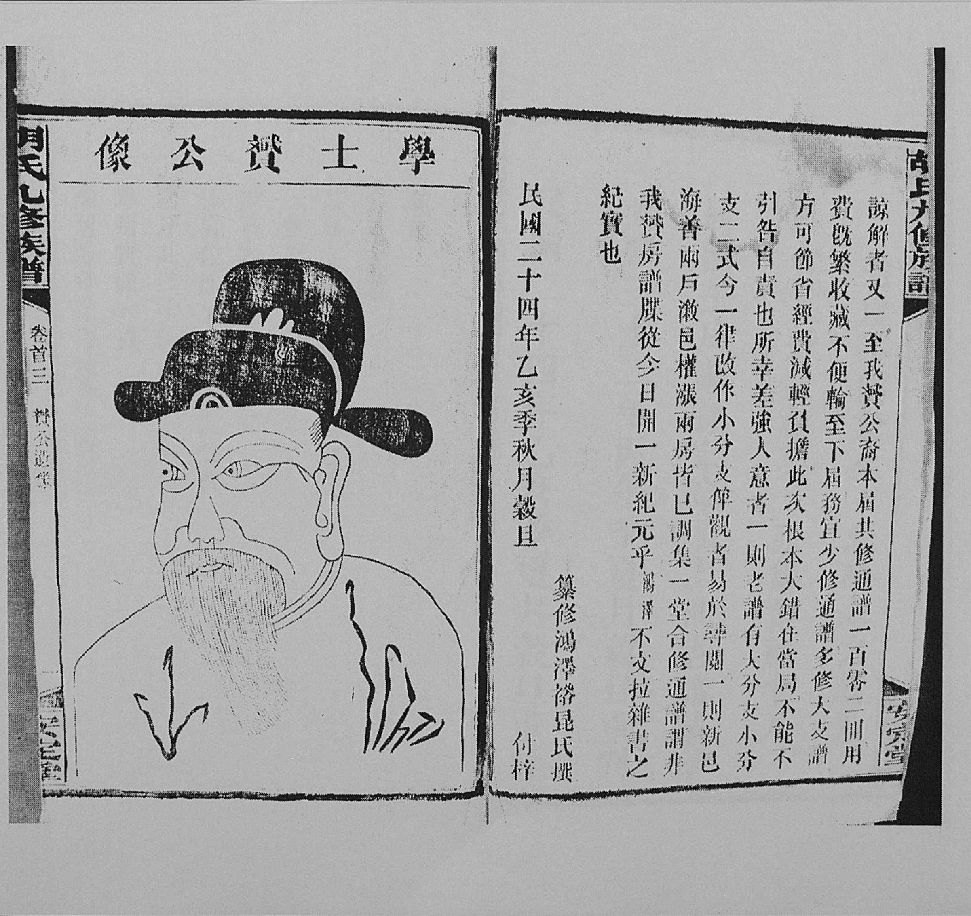 胡氏九修族譜
安定堂
諒解者又一至我贇公裔本屆共修通譜一百零二冊用
費既繁收藏不便輪至下屆務宜少修通譜多修大支譜
方可節省經費減輕負擔此次根本大錯在當局不能不
引咎自責也所幸差強人意者一則老譜有大分支小分
支二式今一律改作小分支俾觀者易於尋閱一則新邑
海善兩戶漵邑權漲兩房皆已調集一堂合修通譜謂非
我贇房譜牒從今日開一新紀元乎鴻澤不文拉雜書之
紀實也
民國二十四年乙亥季秋月穀旦
纂修鴻澤裕昆氏撰
付梓
學士贇公像
胡氏九修族譜
卷首三
贇公遺像
安定堂